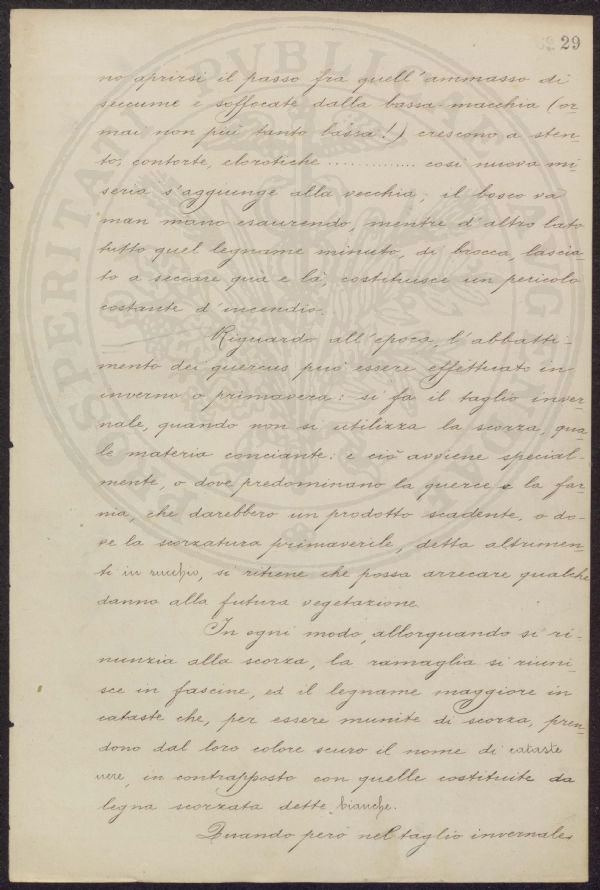 29
no aprirsi il passo fra quell'ammasso di
seccume e soffocate dalla bassa macchia (or-
mai non più tanto bassa!) crescono a sten-
to, contorte, clorotiche .............. così nuova mi-
seria s'aggiunge alla vecchia; il bosco va
man mano esaurendo, mentre d'altro lato
tutto quel legname minuto, di brocca, lascia-
to a seccare qua e là, costituisce un pericolo
costante d'incendio.
Riguardo all'epoca, l'abbatti-
mento dei quercus può essere effettuato in
inverno o primavera: si fa il taglio inver-
nale, quando non si utilizza la scorza, qua-
le materia conciante: e ciò avviene special-
mente, o dove predominano la querce e la far-
nia, che darebbero un prodotto scadente, o do-
ve la scorzatura primaverile, detta altrimen-
ti in succhio, si ritiene che possa arrecare qualche
danno alla futura vegetazione.
In ogni modo, allorquando si ri-
nunzia alla scorza, la ramaglia si riuni-
sce in fascine, ed il legname maggiore in
cataste che, per essere munite di scorza, pren-
dono dal loro colore scuro il nome di cataste
nere, in contrapposto con quelle costituite da
legna scorzata dette bianche.
Quando però nel taglio invernale
PROSPERITATI PVBLICAE AVGENDAE